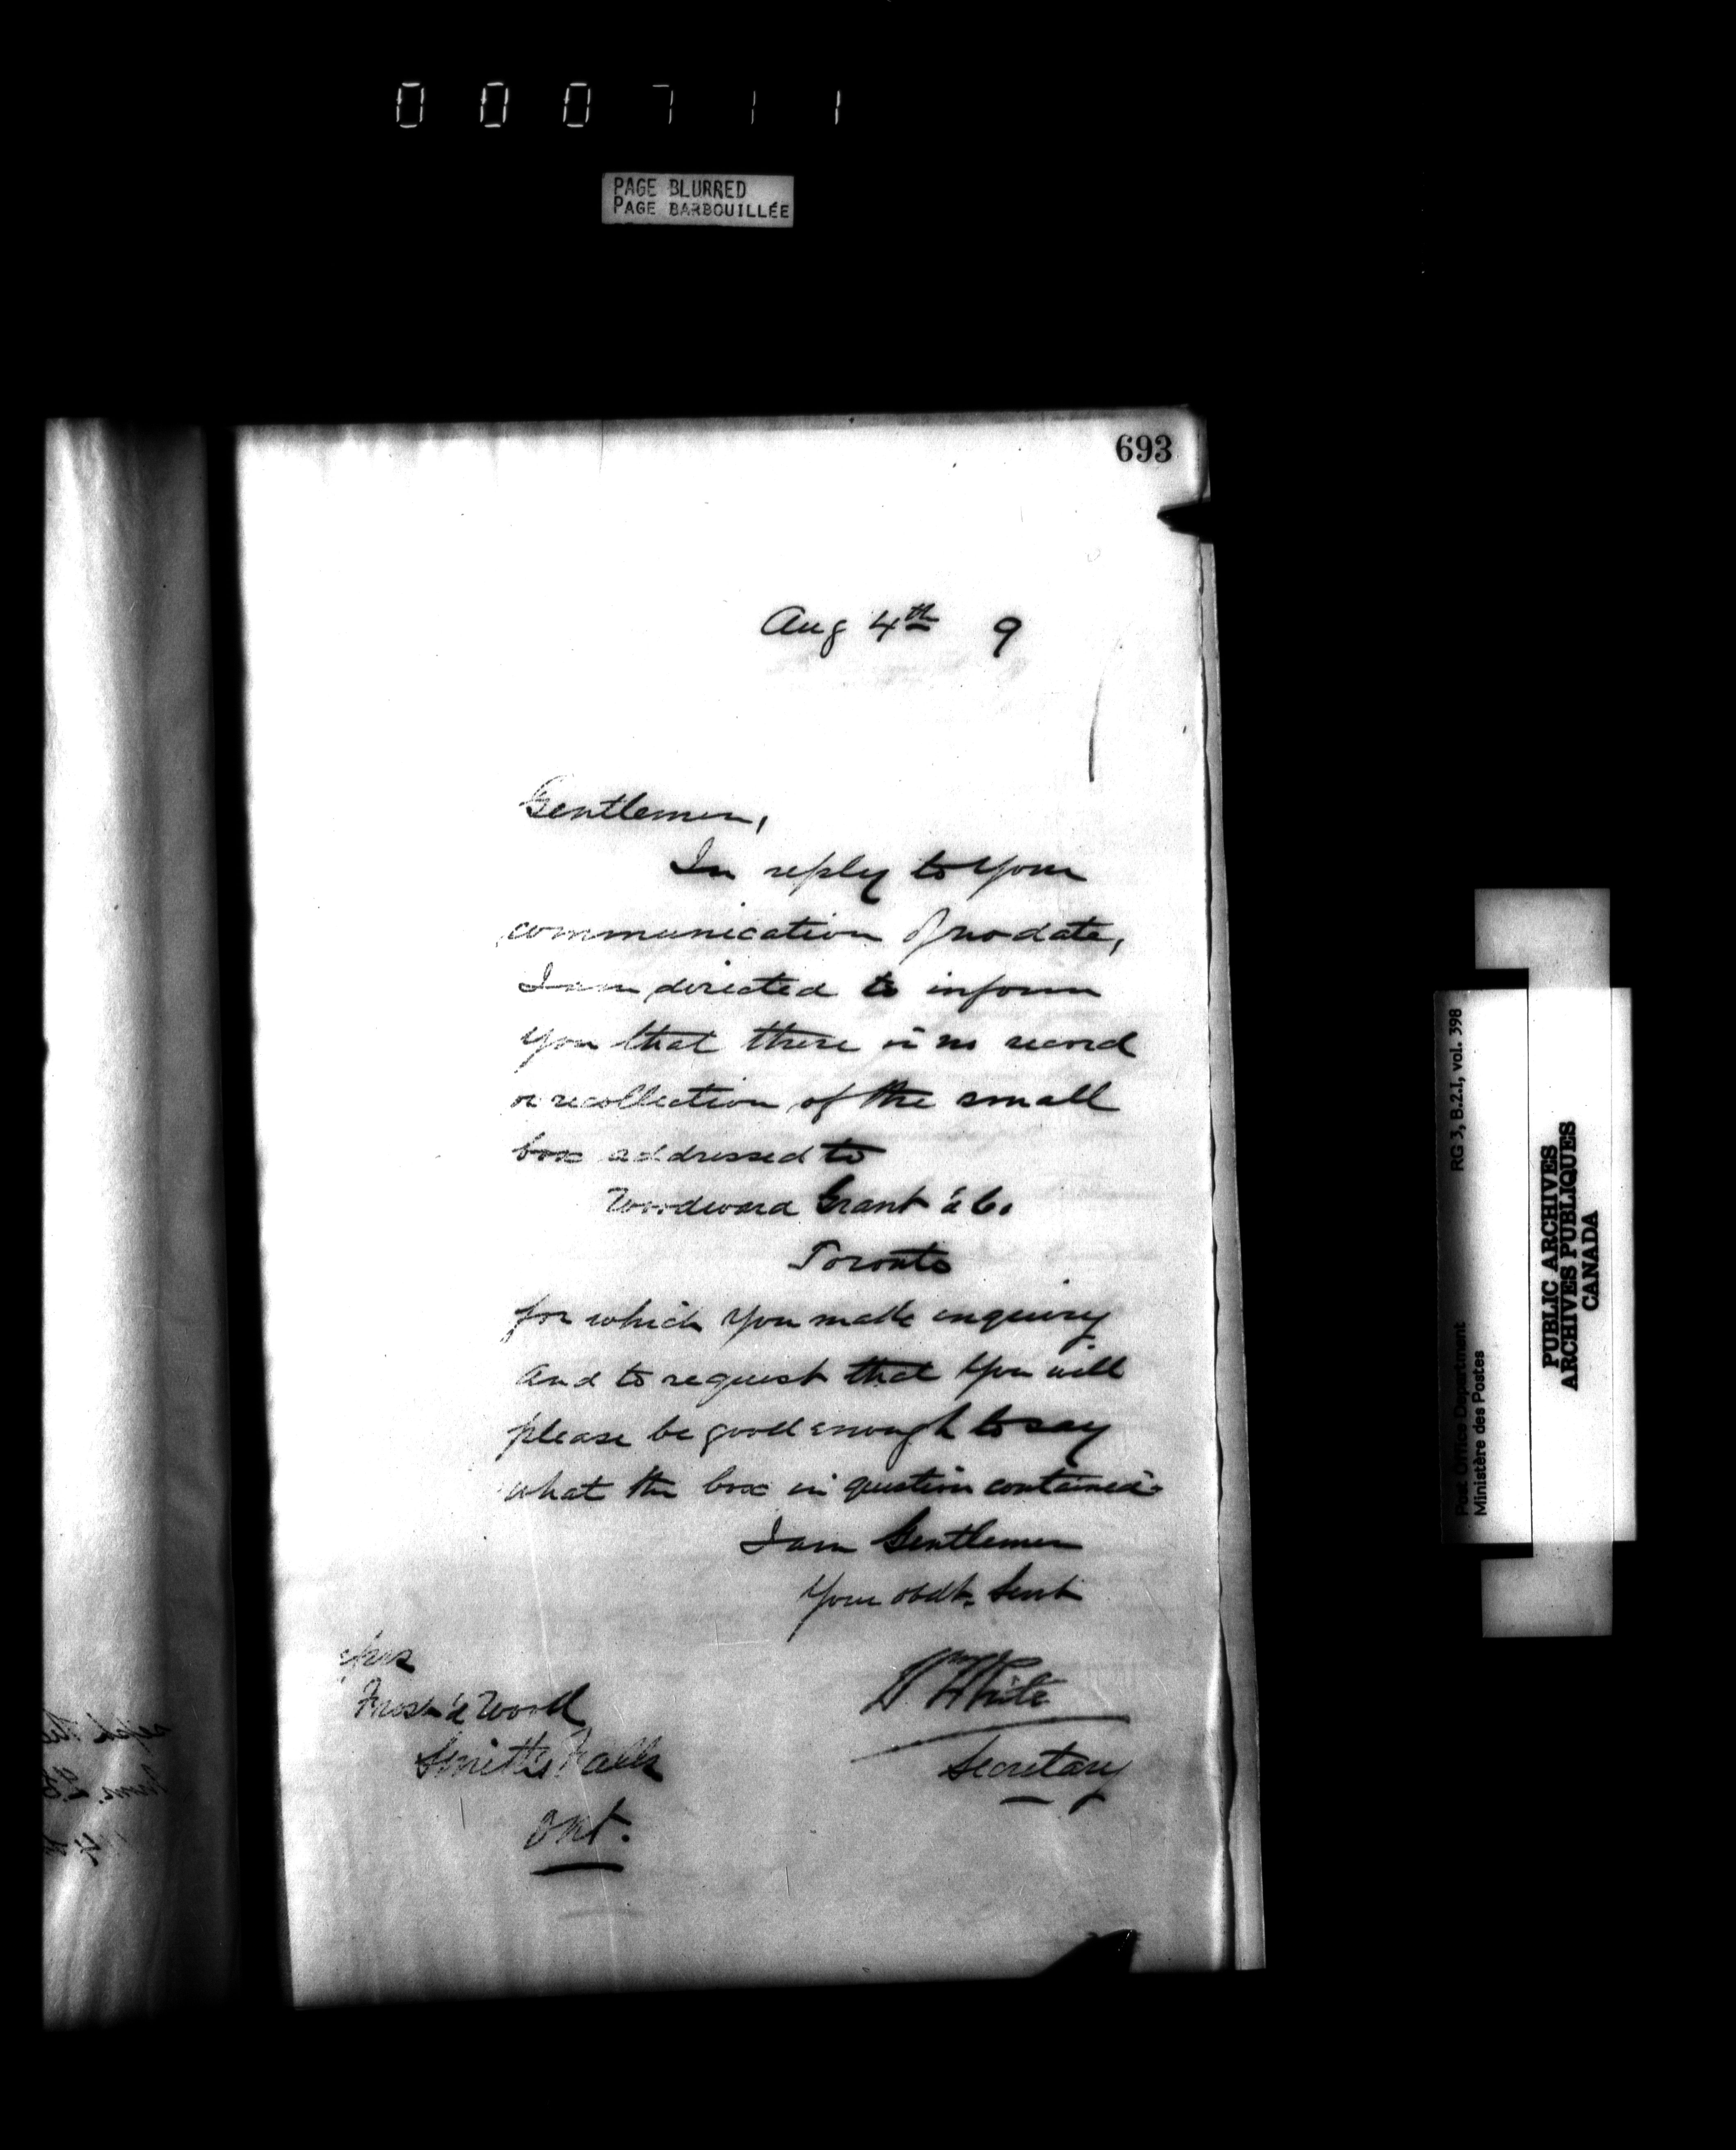 000711
PAGE BLURRED
PAGE BARBOUILLÉE
693
Aug 4th 9
Gentlemen,
In reply to your
communication of no date,
I am directed to inform
you that there is no record
or recollection of the small
box addressed to
Woodward Grant & Co.
Toronto
for which you make enquiry
and to request that you will
please be good enough to say
what the box in question contained.
I am Gentlemen
Your obdt. Servt
Wm White
Secretary
Frost & Wood
Smith's Falls
Ont.
RG 3, B.2.1, vol. 398
Post Office Department
Ministère des Postes
PUBLIC ARCHIVES
ARCHIVES PUBLIQUES
CANADA